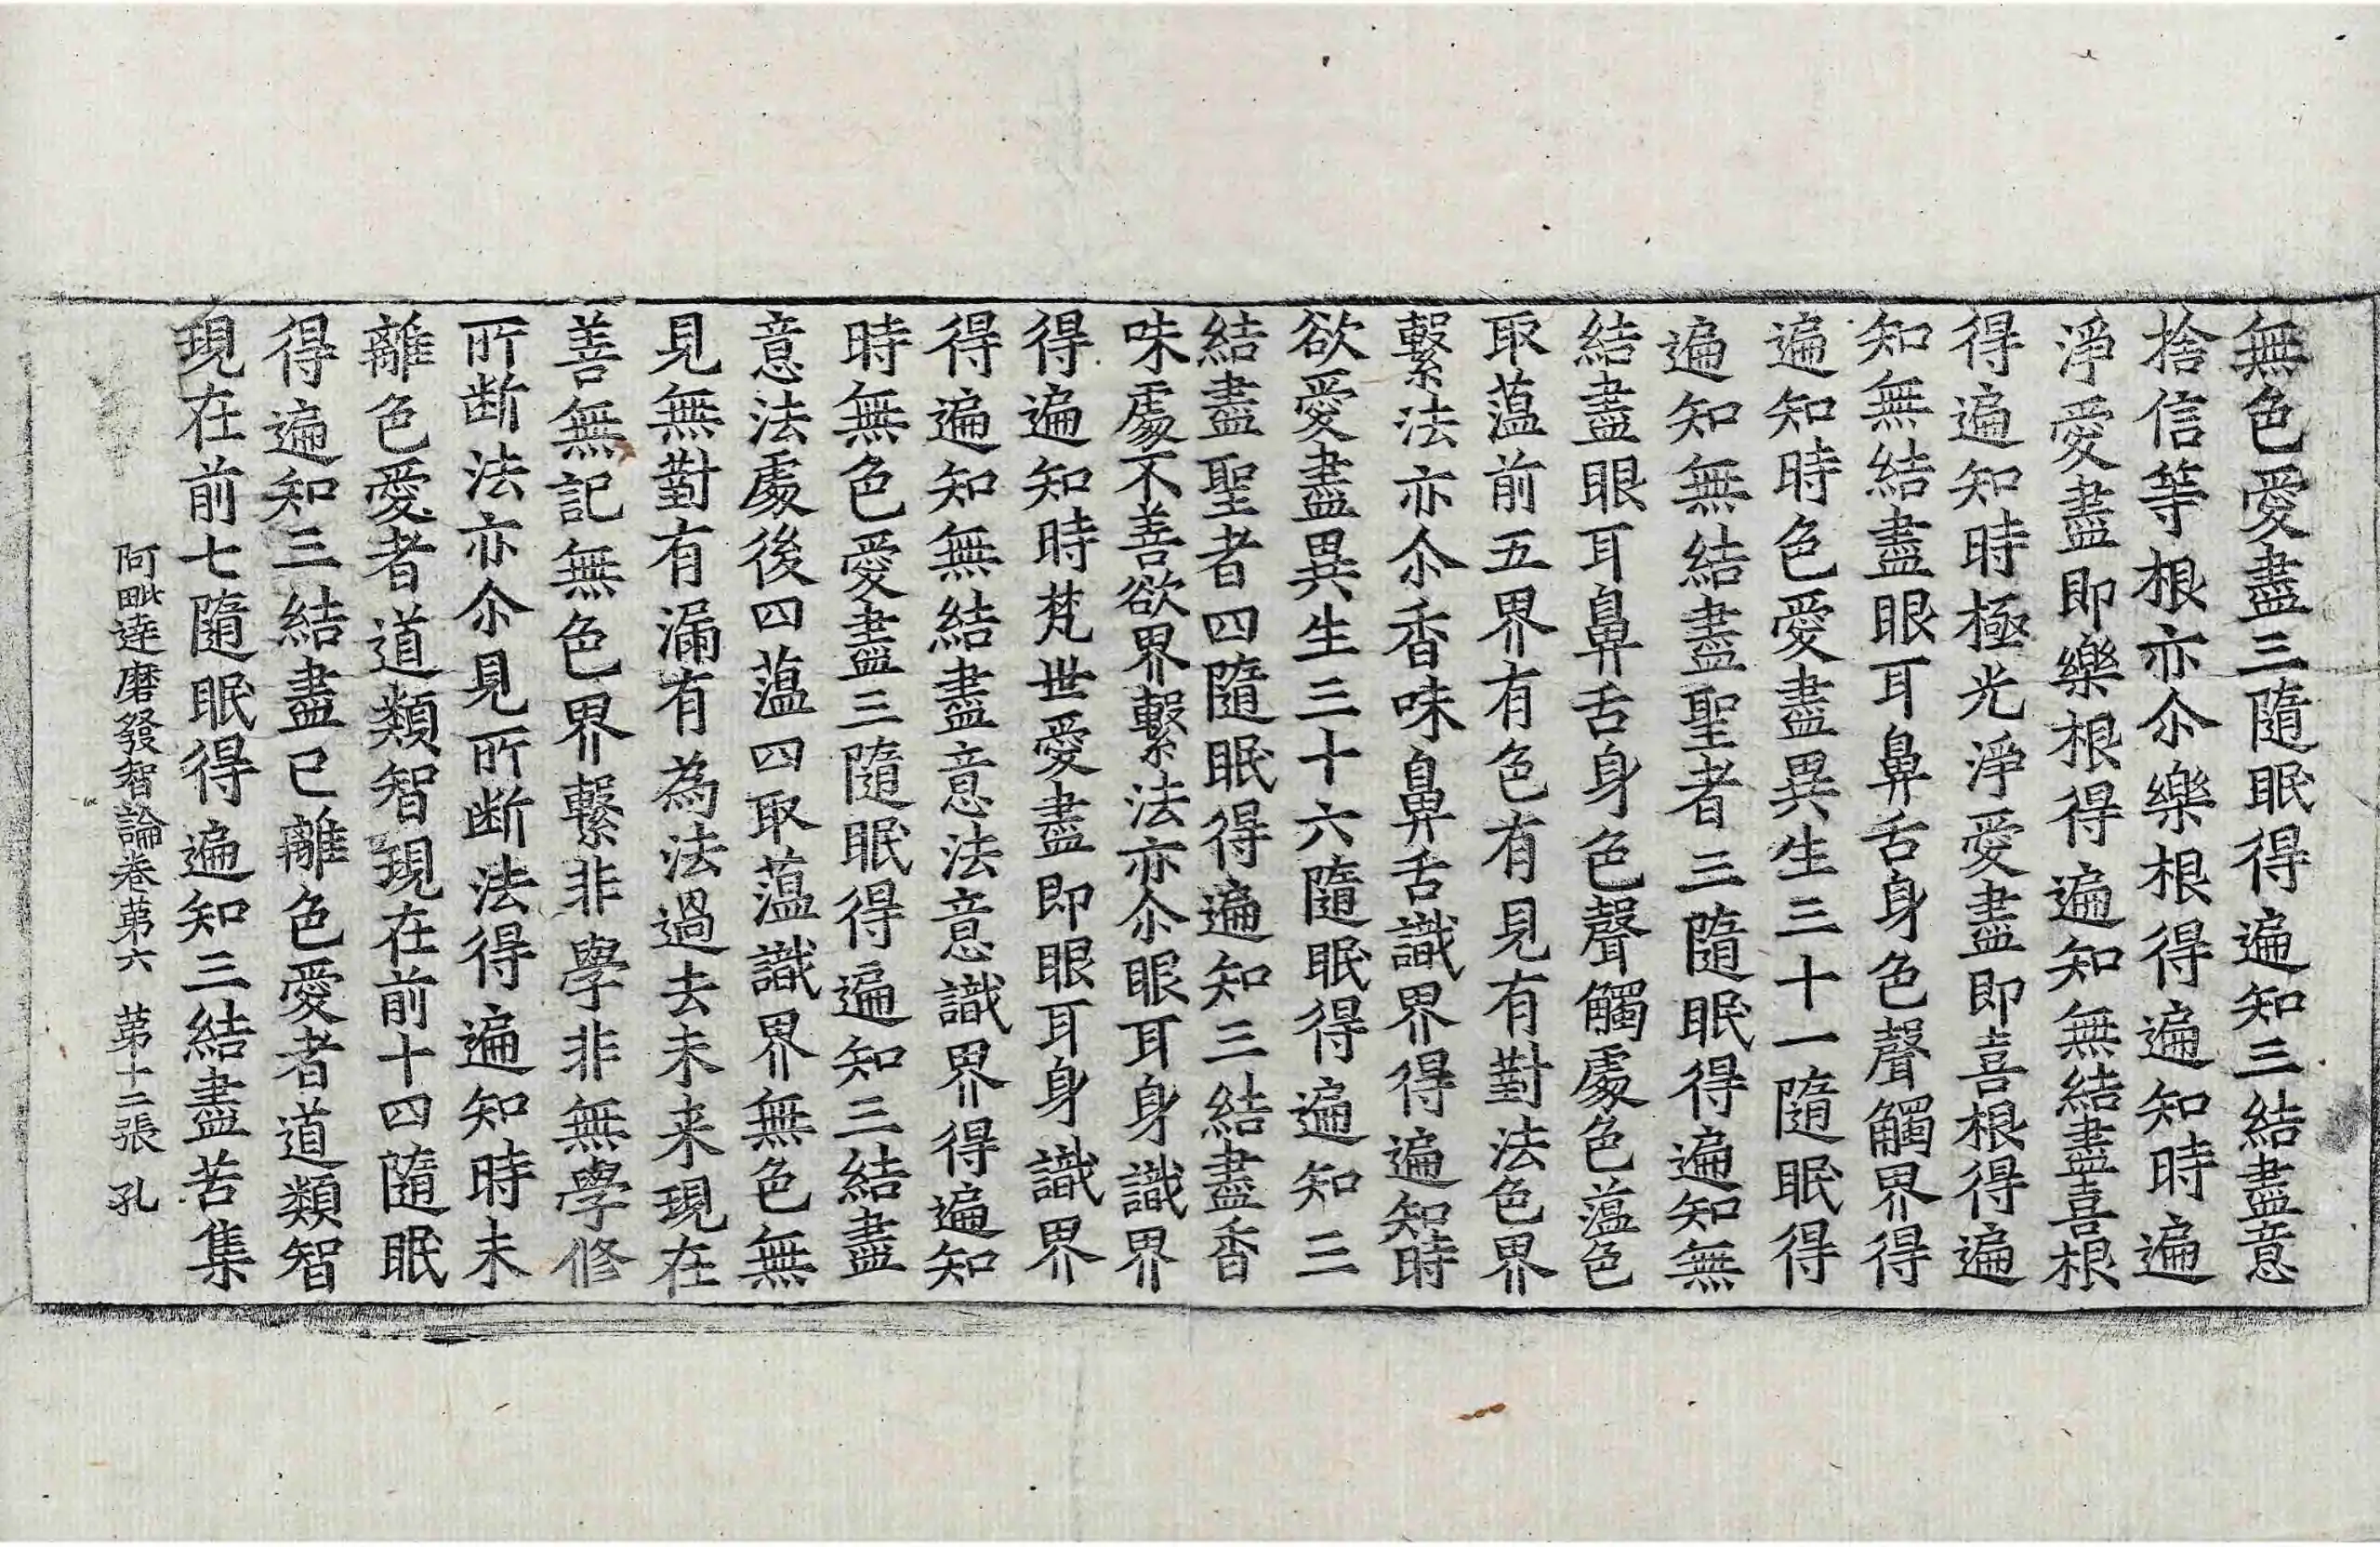 無色愛盡三隨眠得遍知三結盡意
捨信等根亦尒樂根得遍知時遍
淨愛盡即樂根得遍知無結盡喜根
得遍知時極光淨愛盡即喜根得遍
知無結盡眼耳鼻舌身色聲觸界得
遍知時色愛盡異生三十一隨眠得
遍知無結盡聖者三隨眠得遍知無
結盡眼耳鼻舌身色聲觸處色蘊色
取蘊前五界有色有見有對法色界
繫法亦尒香味鼻舌識界得遍知時
欲愛盡異生三十六隨眠得遍知三
結盡聖者四隨眠得遍知三結盡香
味處不善欲界繫法亦尒眼耳身識界
得遍知時梵世愛盡即眼耳身識界
得遍知無結盡意法意識界得遍知
時無色愛盡三隨眠得遍知三結盡
意法處後四蘊四取蘊識界無色無
見無對有漏有為法過去未来現在
善無記無色界繫非學非無學修
所断法亦尒見所断法得遍知時未
離色愛者道類智現在前十四隨眠
得遍知三結盡已離色愛者道類智
現在前七隨眠得遍知三結盡苦集
阿毗達磨發智論卷第六 第十二張 孔